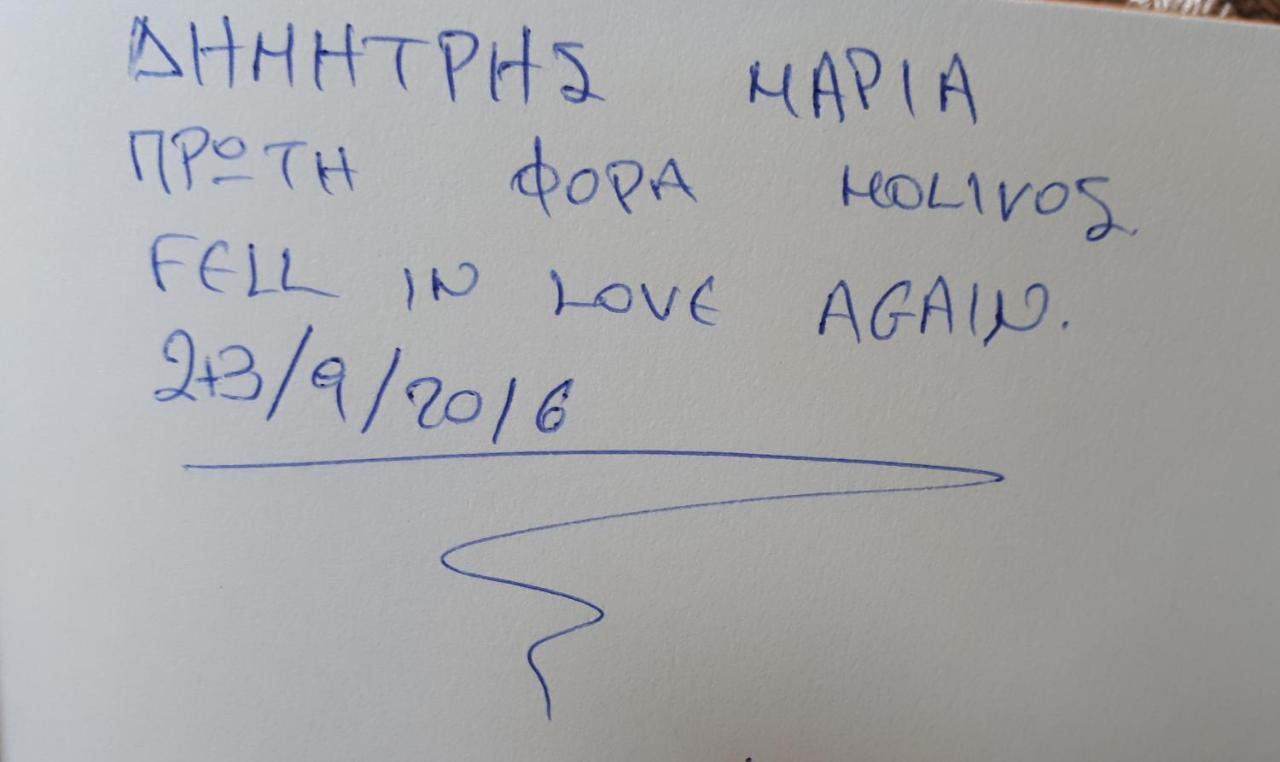 ΔΗΜΗΤΡΗΣ ΜΑΡΙΑ
ΠΡΩΤΗ ΦΟΡΑ MOLIVOS.
FELL IN LOVE AGAIN.
2+3/9/2016